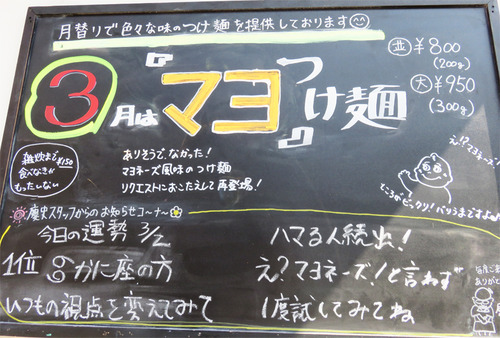 月替りで色々な味のつけ麺を提供しております
並 ¥800
(200g)
大 ¥950
(300g)
3月は『マヨつけ麺』
雑炊まで ¥150
食べなきゃ
もったいない
ありそうで、なかった!
マヨネーズ風味のつけ麺
リクエストにおこたえして再登場!
え?マヨネーズ?
ところがビックリ!バリうまですよ
スタッフからのお知らせコ〜ナ〜
今日の運勢 3/2
1位 ♋かに座の方
いつもの視点を変えてみて
ハマる人続出!
え?マヨネーズ!と言わず
1度試してみてね